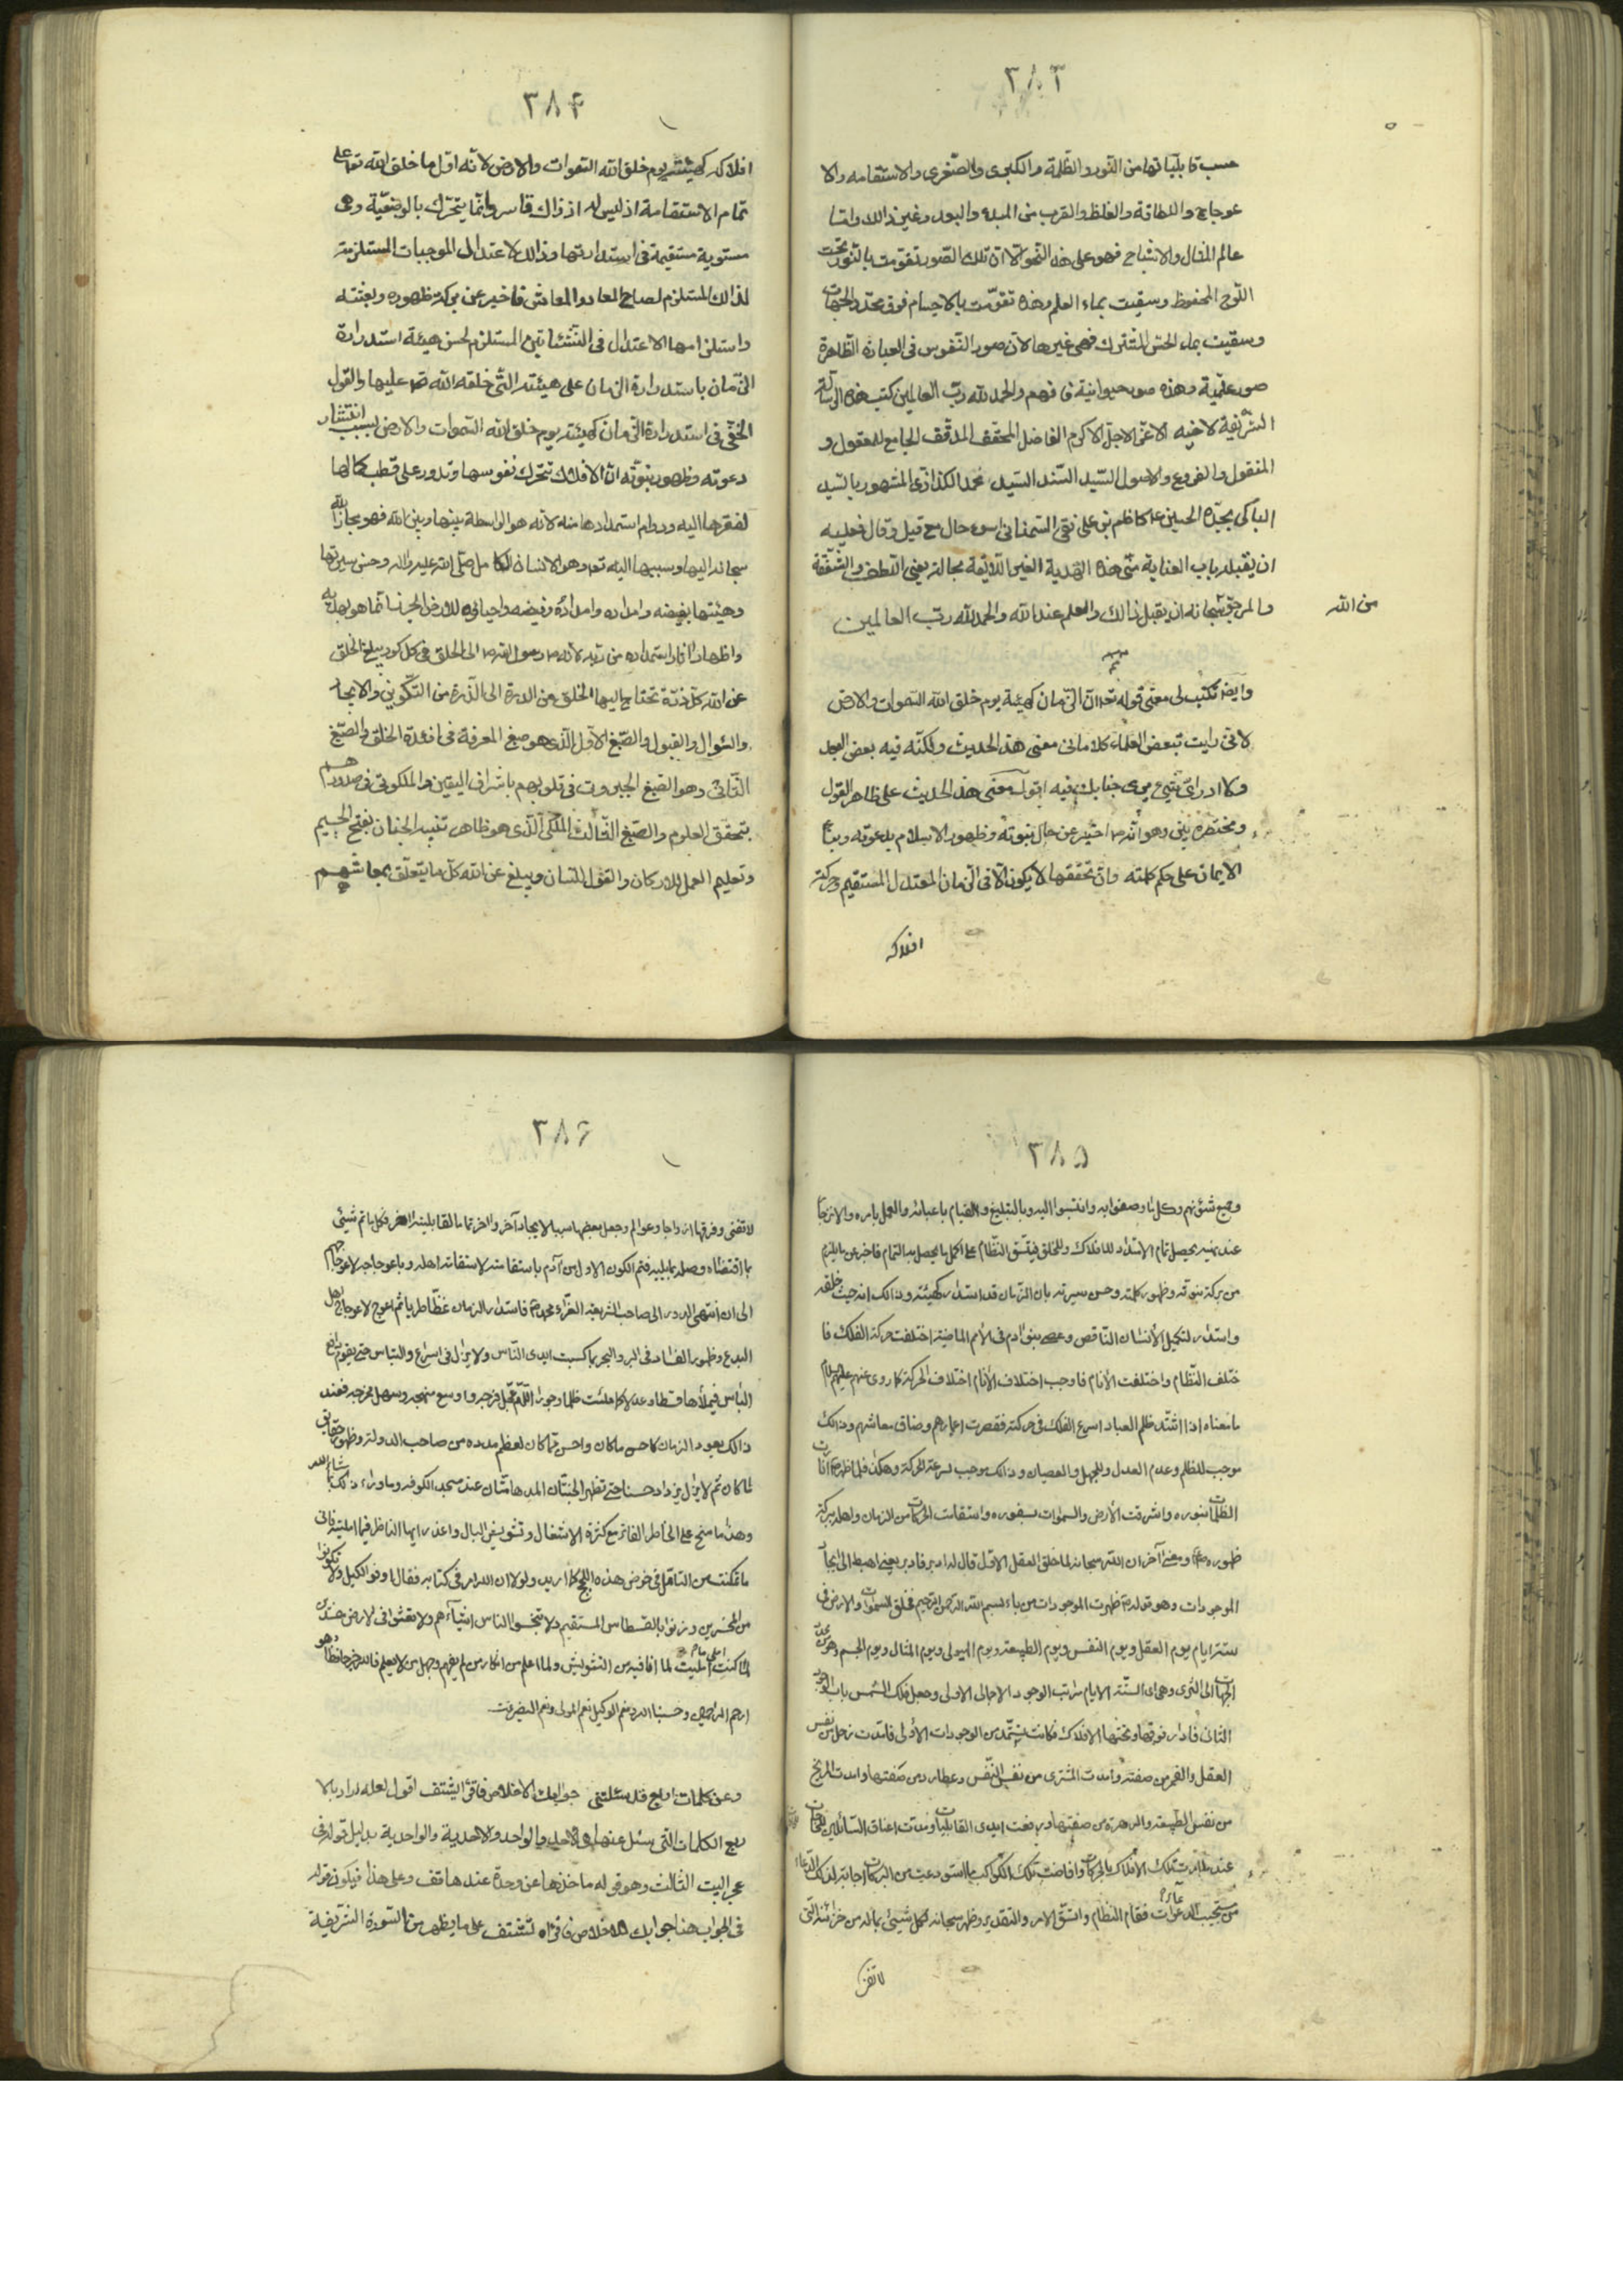 ٣٨٣
حسب قابلياتها من النور والظلمة والكبرى والصغرى والاستقامه والا
عوجاج واللطافة والغلظ والقرب من المبدء والبعد وغير ذالك واما
عالم المثال والاشباح فهو على هذا النحو الا ان تلك الصور تقومت بالنور تحت
اللوح المحفوظ وسقيت بماء العلم وهذه تقومت بالاجسام فوق محدد الجهات
وسقيت بماء الحس المشترك فهى غيرها لان صور النفوس فى العبارة الظاهرة
صور علمية وهذه صور حيوانية فافهم والحمد لله رب العالمين كتب هذه الرسالة
الشريفة لاخيه الاعز الاجل الاكرم الفاضل المحقق المدقق الجامع للمعقول و
المنقول والفروع والاصول السيد السند السيد محمد المشهور بالسيد
الباكى بجده الحسين ع كاظم بن على نقى السمنانى اسوء حال مع قيل وقال فعليه
ان يقبله بباب العناية منى هذه الهدية الغير اللايقة بحاله بعين اللطف والشفقة
من الله
والمرجو سبحانه ان يقبل ذالك والعلم عند الله والحمد لله رب العالمين
وايضا تكتب لى معنى قوله ان الزمان كهيئة يوم خلق الله السموات والارض
لانى رايت لبعض العلماء كلاما فى معنى هذا الحديث ولكنه فيه بعض البعد
وكلا ادرى اى شيئ يرى جنابك فيه اقول معنى هذا الحديث على ظاهر القول
ومختصره يبنى وهو انه ص اخبر عن حال نبوته وظهور الاسلام بدعوته
الايمان على حكم كلمته وان تحققها لا يكون الا فى الزمان المعتدل المستقيم وحركة
افلاكه
٣٨۴
افلاكه كهيئته يوم خلق الله السموات والارض لانه اول ما خلق الله تعا على
تمام الاستقامة اذ ليس له اذ ذاك قاسر وانما يتحرك بالوضعية وهى
مستوية مستقيمة فى استدارتها وذالك لاعتدال الموجبات المستلزمة
لذالك المستلزم لصلاح المعاد والمعاش فاخبر عن بركة ظهوره وبعثته
واستلزامها الاعتدال فى النشئاتين المستلزم لحسن هيئة استدارة
الزمان باستدارة الزمان على هيئته التى خلقه الله تعا عليها والقول
الخفى فى استدارة الزمان كهيئته يوم خلق الله السموات والارض لسبب انتشار
دعوته وظهور نبوته ان الافلاك تتحرك نفوسها وتدور على قطب كمالها
لفقرها اليه ودوام استمدادها منه لانه هو الواسطة بينها وبين الله فهو مجاز الله
سبحانه اليها وسبيها اليه تعا وهو الانسان الكامل صلى الله عليه واله وحسن سيرتها
وهيئتها بفيضه وامداده وفيضه واحيائه للارض الجرز بما هو به
واظهار اثار استمداده من ربه لانه ص رسول الله ص الى الخلق فى كل كور يبلغ الخلق
عن الله كل ذرة تحتاج اليها الخلق من الدرة الى الذرة من التكوين والايجاد
والسوال والقبول والصبغ الاول الذى هو صبغ المعرفة فى افئدة الخلق والصبغ
الثانى وهو الصبغ الجبروت فى قلوبهم باشراق اليقين والملكوتى فى صدورهم
بتحقق العلوم والصبغ الثالث الملكى الذى هو ظاهر تنبيه الجنان بفتح الجيم
وتعليم العمل للاركان والقول للسان ويبلغ عن الله كل ما يتعلق بمعاشهم
٣٨۵
وجميع شئونهم وكل ما وصفوا به وانتسبوا اليه وبالتبليغ والقيام باعبائه والعمل بامره والانزجار
عند نهيه يحصل تمام الاستمداد للافلاك وللخلق فيتسق النظام على اكمل ما يحصل به التمام فاخبر عن ما يلزم
من بركة نبوته وظهور كلمته وحسن سيرته بان الزمان قد استدار كهيئته وذالك انه حيث خلقه
واستدار لتكميل الانسان الناقص وعصى بنو ادم فى الامم الماضية اختلفت حركة الفلك فا
ختلف النظام واختلفت الانام فاوجب اختلاف الانام اختلاف الحركة كما روى عنهم عليهم السلام
ما معناه اذا اشتد ظلم العباد اسرع الفلك فى حركته فقصرت اعمارهم وضاق معاشهم وذالك
موجب للظلم وعدم العدل وللجهل والعصيان وذالك موجب لسرعة الحركة وهكذا فلما ظهر انارت
الظلمات بنوره واشرقت الارض والسموات بسفوره واستقامت الحركات من الزمان واهله ببركة
ظهوره ومعنى آخر ان الله سبحانه لما خلق العقل الاول قال له ادبر فادبر يعنى اهبط الى ايجاد
الموجودات وهو قوله ظهرت الموجودات من باء بسم الله الرحمن الرحيم فخلق السموات والارض فى
ستة ايام يوم العقل ويوم النفس ويوم الطبيعة ويوم الهيولى ويوم المثال ويوم الجسم وهو من محدد
الجهات الى الثرى وهى اى الستة الايام مراتب الوجود الاجمالى الاولى وجعل فلك الشمس باب الوجود
الثانى فادار فوقها وتحتها الافلاك فكانت تستمد من الوجودات الاولى فامدت زحل من نفس
العقل والقمر من صفته وامدت المشترى من نفس النفس وعطارد من صفتها وامدت المريخ
من نفس الطبيعة والزهرة من صفتها ورفعت ايدى القابليات ومدت اعناق السائلين للحاجات
عند ظاهرة تلك الافلاك بالحركات وافاضت تلك الكواكب ما استودعت من البركات اجابة لذلك الدعاء
من مستجيب الدعوات فقام النظام واتسق الامر والتقدير وظهر سبحانه لكل شيئ بما له من خزائنه التى
لا تفنى
٣٨۶
لا تفنى وفرقها ازواجا وعوالم وجعل بعضها سببا لايجاد آخر والاخر تماما لقابلية الاخر فكل ما تم شيئ
بما اقتضاه وصله بما يليه فتم الكون الاول من آدم باستقامته لاستقامة اهله وباعوجاجه لاعوجاجهم
الى ان انتهى الدور الى صاحب الشريعة الغراء محمد ص فاستدار الزمان غضا طريا ثم اعوج لاعوجاج اهل
البدع وظهور الفساد فى البر والبحر بما كسبت ايدى الناس ولا يزال فى اسراع والتباس حتى يقوم
الباس فيملأها قسطا وعدلا كما ملئت ظلما وجورا اللهم عجل فرجه واوسع منهجه وسهل مخرجه فعند
ذالك يعود الزمان كاحسن ما كان واحسن مما كان لعظم مدده من صاحب الدولة وظهور حقايق
ما كان ثم لا يزال يزداد حسنا حتى تظهر الجنتان المدهامتان عند مسجد الكوفه وما وراء ذالك بما شاء الله
وهذا ما سنح على الخاطر الفاتر مع كثرة الاشغال وتشويش البال واعذر ايها الناظر فيما امليته فانى
ما تمكنت من التامل فى خوض هذه اللجج كما اريد ولولا ان الله امر فى كتابه فقال اوفوا الكيل ولا تكونوا
من المخسرين وزنوا بالقسطاس المستقيم ولا تبخسوا الناس اشياءهم ولا تعثوا فى الارض مفسدين
لما كنت امليت ما امليت لما انا فيه من التشويش ولما اعلم من انكار من لم يفهم وجهل من لا يعلم فالله خير حافظا وهو
ارحم الراحمين وحسبنا الله ونعم الوكيل نعم المولى ونعم النصير
وعن كلمات اربع قد سئلتنى جوابك الاخلاص فاقرأ لتشتف اقول لعله اراد بالا
ربع الكلمات التى سئل عنها هو الاحد والواحد والاحدية والواحدية بدليل قوله فى
عجز البيت الثالث وهو قوله ما خذها عن وحدة عند هاتف وعلى هذا فيكون قوله
فى الجواب هنا جوابك الاخلاص فاقرأه تشتف على ما يظهر من السورة الشريفة